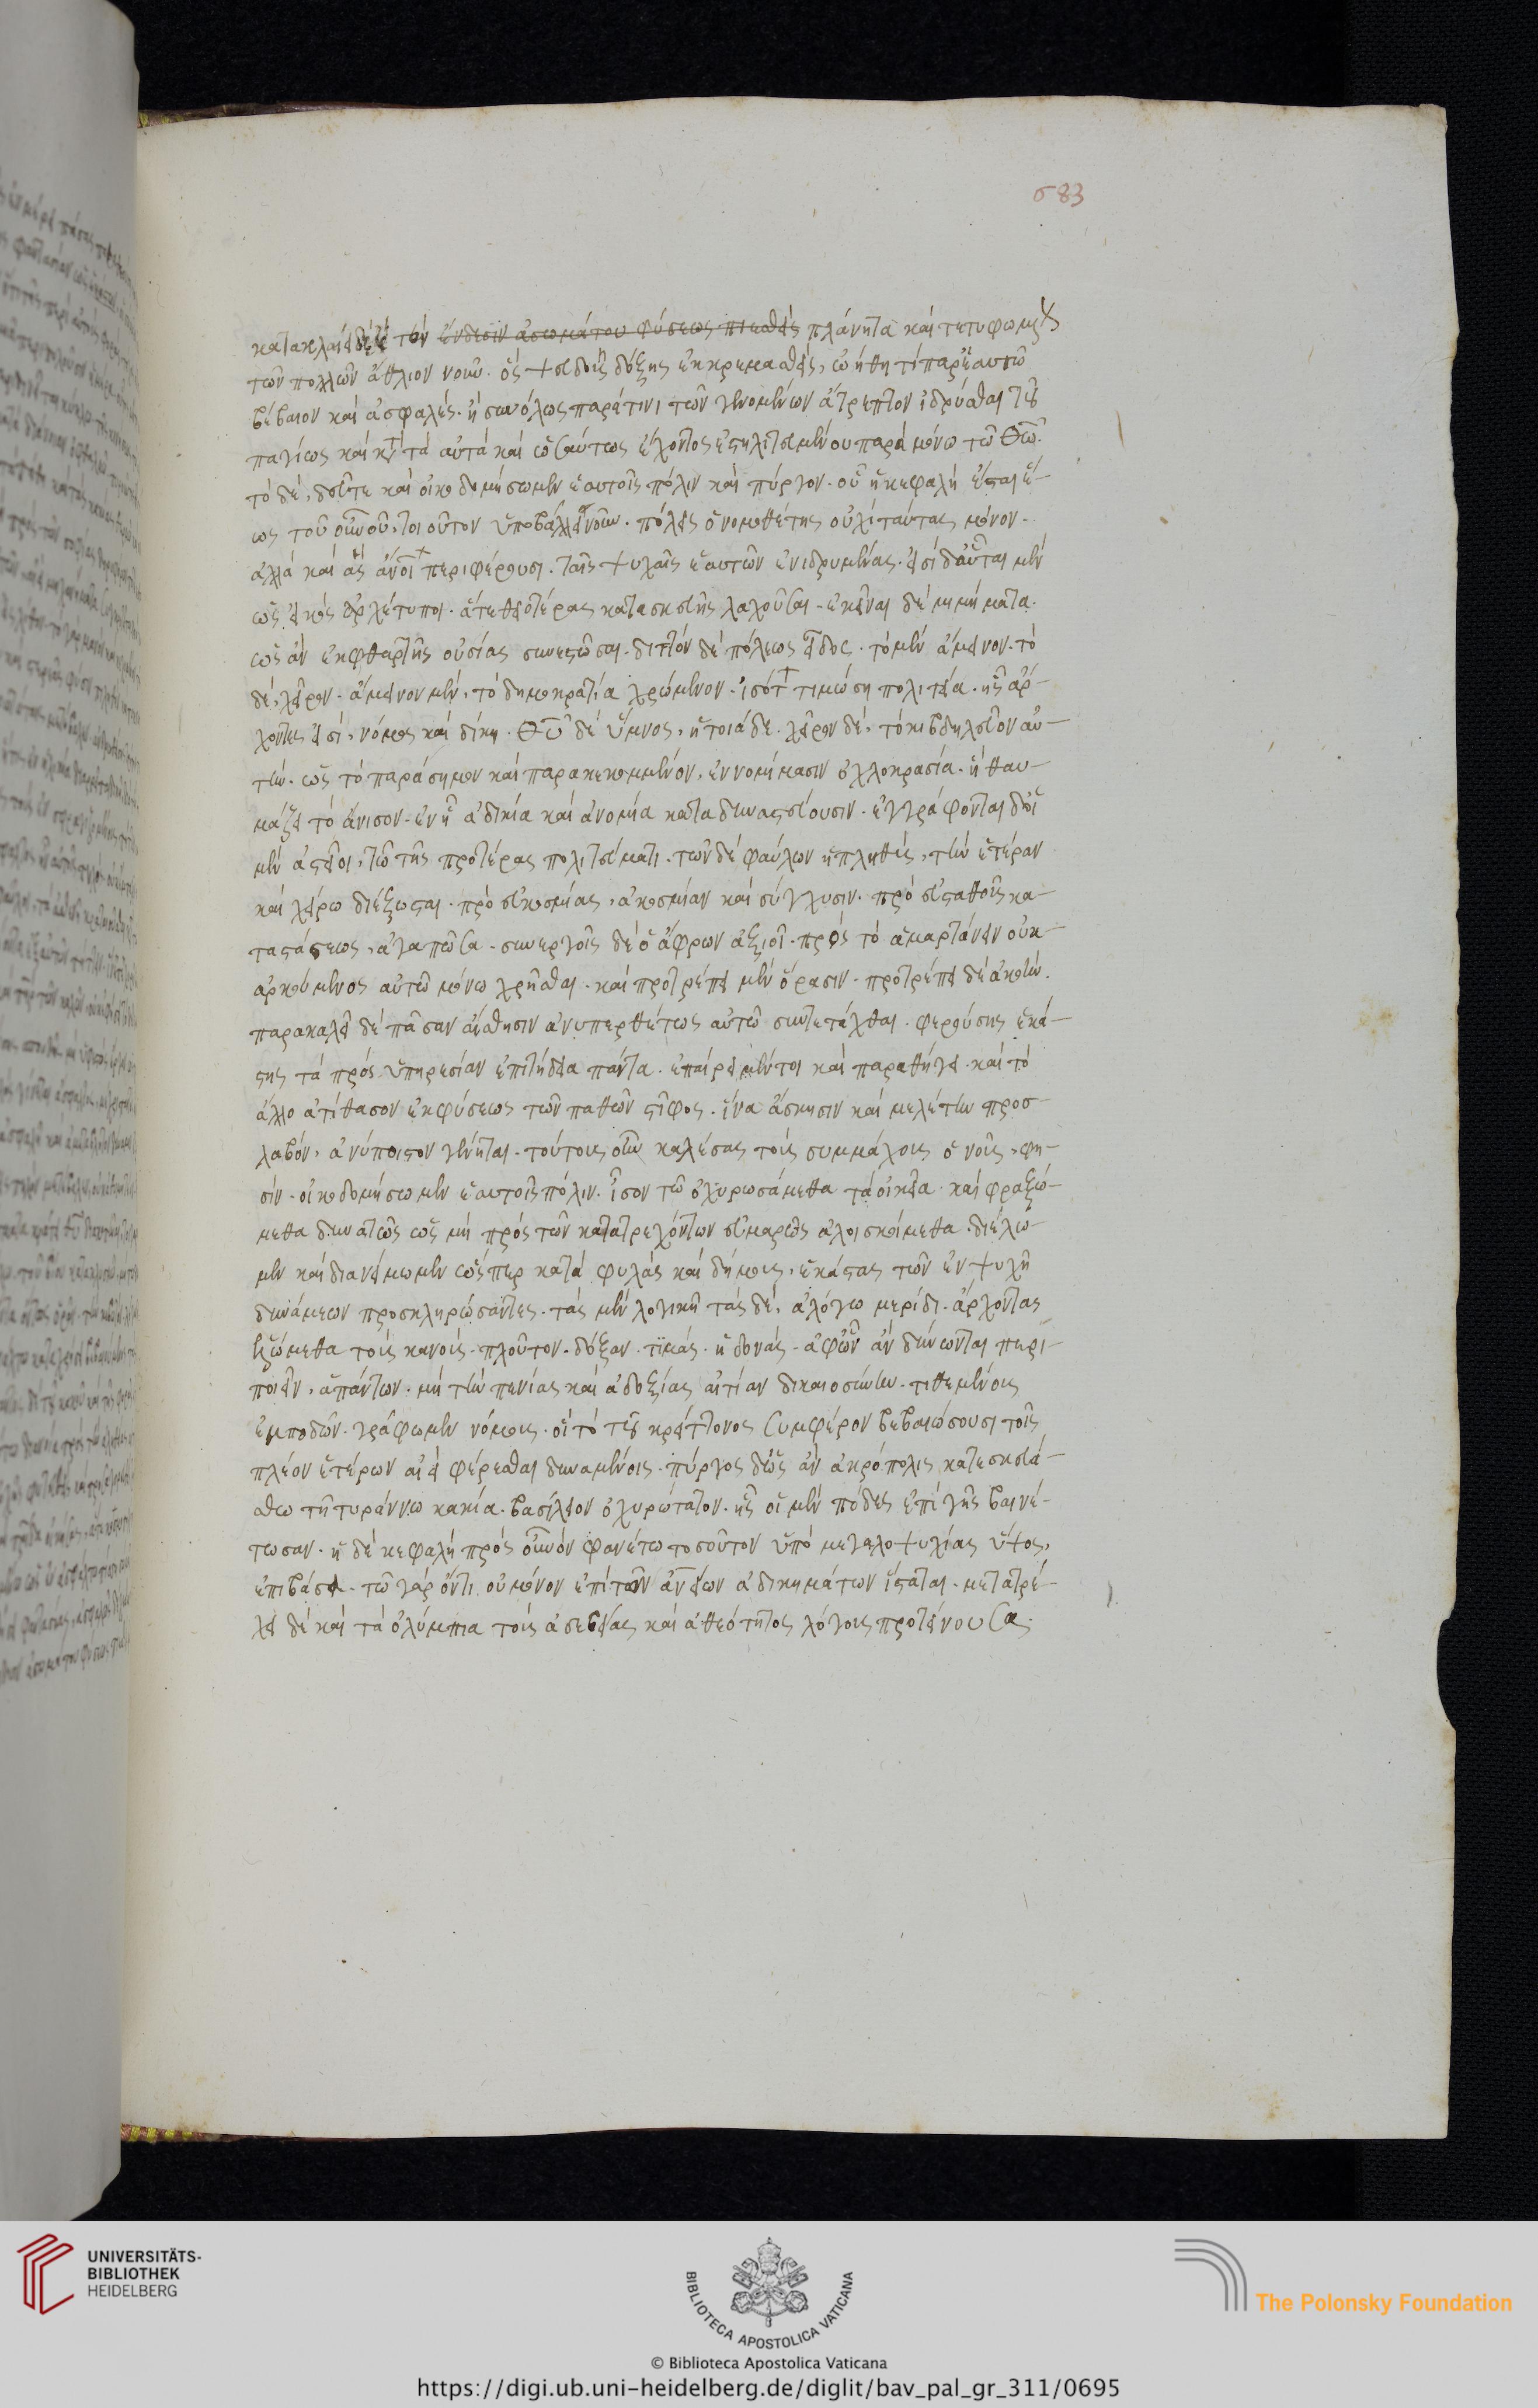 σ 83
κατακλαίει δὲ τὸν ἔνδεσιν ἀσωμάτου φύσεως πιεσθεὶς πλάνητα καὶ τετυφωμένον
τῶν πολλῶν ἄθλιον νοῦν. ὃς ψευδοῦς δόξης ἐκκρεμασθεὶς, ὠήθη τὶ παρ' ἑαυτῶ
βέβαιον καὶ ἀσφαλές. ἢ συνόλως παρά τινι τῶν γενομένων ἄτρεπτον ἱδρύσθαι τοῦ
παγίως καὶ κατὰ τὰ αὐτὰ καὶ ὡσαύτως ἔχοντος ἐστηλιτευμένου παρὰ μόνω τῶ θ̅ω̅.
τὸ δὲ, δεῦτε καὶ οἰκοδομήσωμεν ἑαυτοῖς πόλιν καὶ πύργον. οὗ ἡ κεφαλὴ ἔσται ἕ-
ως τοῦ ο̅υ̅ν̅ο̅ῦ, τοιοῦτον ὑποβάλλει νοῦν. πόλεις ὁ νομοθέτης οὐχὶ ταύτας μόνον-
ἀλλὰ καὶ ἃς ἄ̅ν̅ο̅ι περιφέρουσι. ταῖς ψυχαῖς ἑαυτῶν ἐνιδρυμένας. εἰσὶ δ' αὗται μὲν
ὡς εἰκὸς ἀρχέτυποι. ἅτε θειοτέρας κατασκευῆς λαχοῦσαι. ἐκεῖναι δὲ μιμήματα.
ὡς ἂν ἐκ φθαρτῆς οὐσίας συνεστῶσαι. διττὸν δὲ πόλεως εἶδος. τὸ μὲν ἄμεινον. τὸ
δὲ, χεῖρον. ἄμεινον μὲν, τὸ δημοκρατία χρώμενον. ἰσότητα τιμώση πολιτεία. ἧς ἄρ-
χοντες εἰσὶ, νόμος καὶ δίκη. θ̅υ̅ δὲ ὕμνος, ἡ τοιάδε. χεῖρον δὲ, τὸ κιβδηλεῦον αὐ-
τήν. ὡς τὸ παράσημον καὶ παρακεκομμένον, ἐν νομίμασιν ὀχλοκρασία. ἣ θαυ-
μάζει τὸ ἄνισον. ἐν ᾗ ἀδικία καὶ ἀνομία καταδυναστεύουσιν. ἐγγράφονται δ' οἱ
μὲν ἀστεῖοι, τῶ τῆς προτέρας πολιτεύματι. τῶν δὲ φαύλων ἡ πληθὺς, τὴν ἑτέραν
καὶ χείρω διέζωσται. πρὸ εὐκοσμίας, ἀκοσμίαν καὶ σύγχυσιν. πρὸ εὐσταθοῦς κα-
ταστάσεως, ἀγαπῶσα. συνεργοῖς δὲ ὁ ἄφρων ἀξιοῖ. πρὸς τὸ ἁμαρτάνειν οὐκ
ἀρκούμενος αὐτῶ μόνω χρῆσθαι. καὶ προτρέπει μὲν ὅρασιν. προτρέπει δὲ ἀκοήν.
παρακαλεῖ δὲ πᾶσαν αἴσθησιν ἀνυπερθέτως αὐτῶ συντετάχθαι. φερούσης ἑκά-
στης τὰ πρὸς ὑπηρεσίαν ἐπιτήδεια πάντα. ἐπαίρει μέντοι καὶ παραθήγει. καὶ τὸ
ἄλλο ἀτίθασον ἐκ φύσεως τῶν παθῶν στῖφος. ἵνα ἄσκησιν καὶ μελέτην προσ-
λαβὸν, ἀνύποιστον γένηται. τούτους οὖν καλέσας τοὺς συμμάχους ὁ νοῦς, φη-
σὶν. οἰκοδομήσωμεν ἑαυτοῖς πόλιν. ἴσον τῶ ὀχυρωσάμεθα τὰ οἰκεῖα. καὶ φραξώ-
μεθα δυνατῶς ὡς μὴ πρὸς τῶν κατατρεχόντων εὐμαρῶς ἁλοισκώμεθα. διέλω-
μεν καὶ διανείμωμεν ὥσπερ κατὰ φυλὰς καὶ δήμους, ἑκάστας τῶν ἐν ψυχῆ
δυνάμεων προσκληρώσαντες. τὰς μὲν λογικῆ τὰς δὲ, ἀλόγω μερίδι. ἄρχοντας
ἑλώμεθα τοὺς ἱκανοὺς. πλοῦτον. δόξαν. τιμὰς. ἡδονὰς. ἀφ' ὧν ἂν δύνωνται περι
ποιεῖν, ἁπάντων. μὴ τὴν πενίας καὶ ἀδοξίας αἰτίαν δικαιοσύνην. τιθεμένοις
ἐμποδὼν. γράφωμεν νόμους. οἳ τὸ τοῦ κρείττονος συμφέρον βεβαιώσουσι τοῖς
πλέον ἑτέρων αἰεὶ φέρεσθαι δυναμένοις. πύργος δ' ὡς ἂν ἀκρόπολις κατεσκευά-
σθω τῆ τυράννω κακία. βασίλειον ὀχυρώτατον. ἧς οἱ μὲν πόδες ἐπὶ γῆς βαινέ-
τωσαν. ἡ δὲ κεφαλὴ πρὸς ο̅υ̅ν̅ὸν φανέτω τοσοῦτον ὑπὸ μεγαλοψυχίας ὕψος,
ἐπιβᾶσα. τῶ γὰρ ὄντι οὐ μόνον ἐπὶ τῶν ἀ̅ν̅είων ἀδικημάτων ἵσταται. μετατρέ-
χει δὲ καὶ τὰ ὀλύμπια τοὺς ἀσεβείας καὶ ἀθεότητος λόγους προτείνουσα.
UNIVERSITÄTS-
BIBLIOTHEK
HEIDELBERG
BIBLIOTECA APOSTOLICA VATICANA
© Biblioteca Apostolica Vaticana
The Polonsky Foundation
https://digi.ub.uni-heidelberg.de/diglit/bav_pal_gr_311/0695